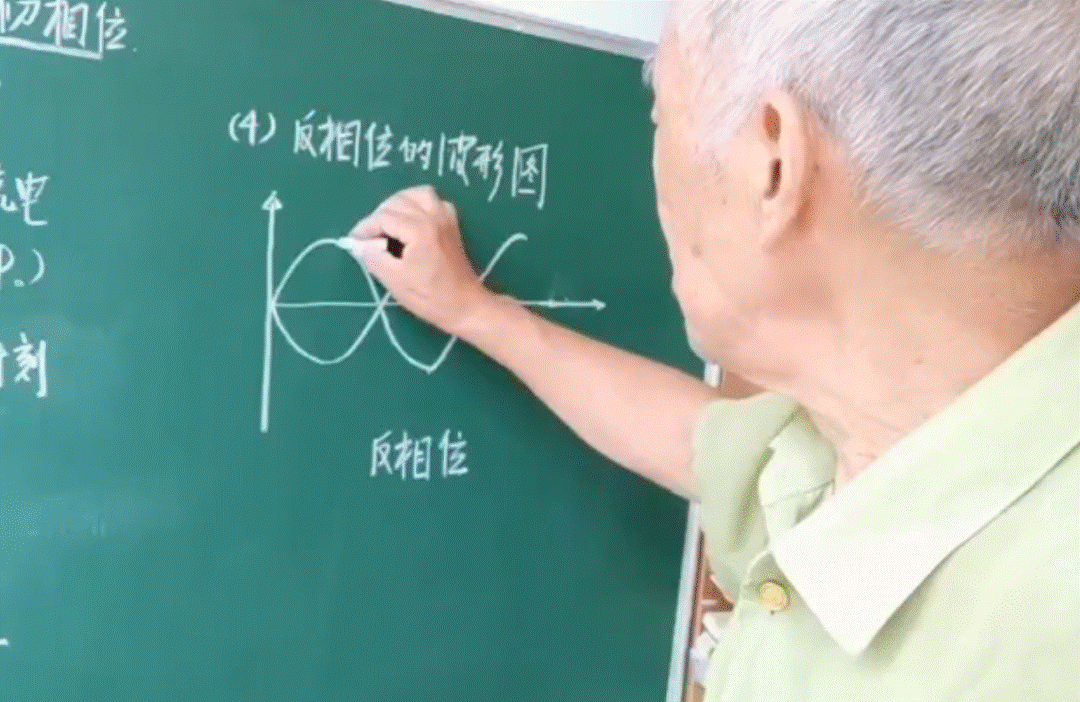 初相位.
流电
φ。)
时刻
(4) 反相位的波形图
反相位